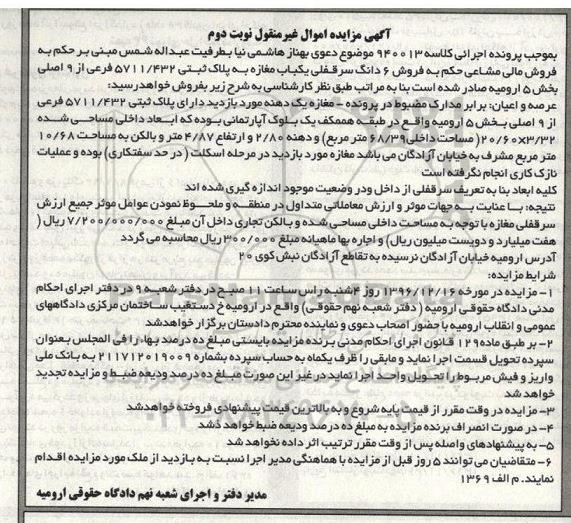 آگهی مزایده اموال غیرمنقول نوبت دوم
بموجب پرونده اجرائی کلاسه ۹۴۰۰۱۳ موضوع دعوی بهناز هاشمی نیا بطرفیت عبداله شمس مبنی بر حکم به
فروش مالی مشاعی حکم به فروش ۶ دانگ سرقفلی یکباب مغازه به پلاک ثبتی ۵۷۱۱/۴۳۲ فرعی از ۹ اصلی
بخش ۵ ارومیه صادر شده است بنا به مراتب طبق نظر کارشناسی به شرح زیر بفروش خواهد رسید:
عرصه و اعیان: برابر مدارک مضبوط در پرونده - مغازه یک دهنه مورد بازدید دارای پلاک ثبتی ۵۷۱۱/۴۳۲ فرعی
از ۹ اصلی بخش ۵ ارومیه واقع در طبقه همکف یک بلوک آپارتمانی بوده که ابعاد داخلی مساحی شده
۲۰/۶۰×۳/۳۲ (مساحت داخلی ۶۸/۳۹ متر مربع) و دهنه ۲/۸۰ و ارتفاع ۴/۸۷ متر و بالکن به مساحت ۱۰/۶۸
متر مربع مشرف به خیابان آزادگان می باشد مغازه مورد بازدید در مرحله اسکلت (در حد سفتکاری) بوده و عملیات
نازک کاری انجام نگرفته است
کلیه ابعاد بنا به تعریف سرقفلی از داخل ودر وضعیت موجود اندازه گیری شده اند
نتیجه: با عنایت به جهات موثر و ارزش معاملاتی متداول در منطقه و ملحوظ نمودن عوامل موثر جمیع ارزش
سرقفلی مغازه با توجه به مساحت داخلی مساحی شده و بالکن تجاری داخل آن مبلغ ۷/۲۰۰/۰۰۰/۰۰۰ ریال (
هفت میلیارد و دویست میلیون ریال) و اجاره بها ماهیانه مبلغ ۳۰۰/۰۰۰ ریال محاسبه می گردد
آدرس ارومیه خیابان آزادگان نرسیده به تقاطع آزادگان نبش کوی ۲۰
شرایط مزایده:
۱- مزایده در مورخه ۱۳۹۶/۱۲/۱۶ روز ۴شنبه راس ساعت ۱۱ صبح در دفتر شعبه ۹ در دفتر اجرای احکام
مدنی دادگاه حقوقی ارومیه (دفتر شعبه نهم حقوقی) واقع در ارومیه خ دستغیب ساختمان مرکزی دادگاههای
عمومی و انقلاب ارومیه با حضور اصحاب دعوی و نماینده محترم دادستان برگزار خواهدشد
۲- بر طبق ماده ۱۲۹ قانون اجرای احکام مدنی برنده مزایده بایستی مبلغ ده درصد بها، را فی المجلس بعنوان
سپرده تحویل قسمت اجرا نماید و مابقی را ظرف یکماه به حساب سپرده بشماره ۲۱۱۷۱۲۰۱۹۰۰۹ به بانک ملی
واریز و فیش مربوط را تحویل واحد اجرا نماید در غیر این صورت مبلغ ده درصد ودیعه ضبط و مزایده تجدید
خواهد شد
۳- مزایده در وقت مقرر از قیمت پایه شروع و به بالاترین قیمت پیشنهادی فروخته خواهدشد
۴- در صورت انصراف برنده مزایده به مبلغ ده درصد ودیعه ضبط خواهد شد
۵- به پیشنهادهای واصله پس از وقت مقرر ترتیب اثر داده نخواهد شد
۶- متقاضیان می توانند ۵ روز قبل از مزایده با هماهنگی مدیر اجرا نسبت به بازدید از ملک مورد مزایده اقدام
نمایند. م الف ۱۳۶۹
مدیر دفتر و اجرای شعبه نهم دادگاه حقوقی ارومیه